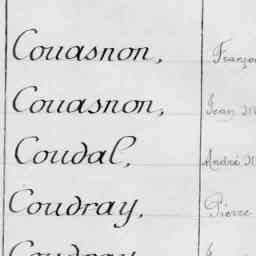 Couasnon, Franço
Couasnon, Jean
Coudal, André M
Coudray, Pierre
Coudray